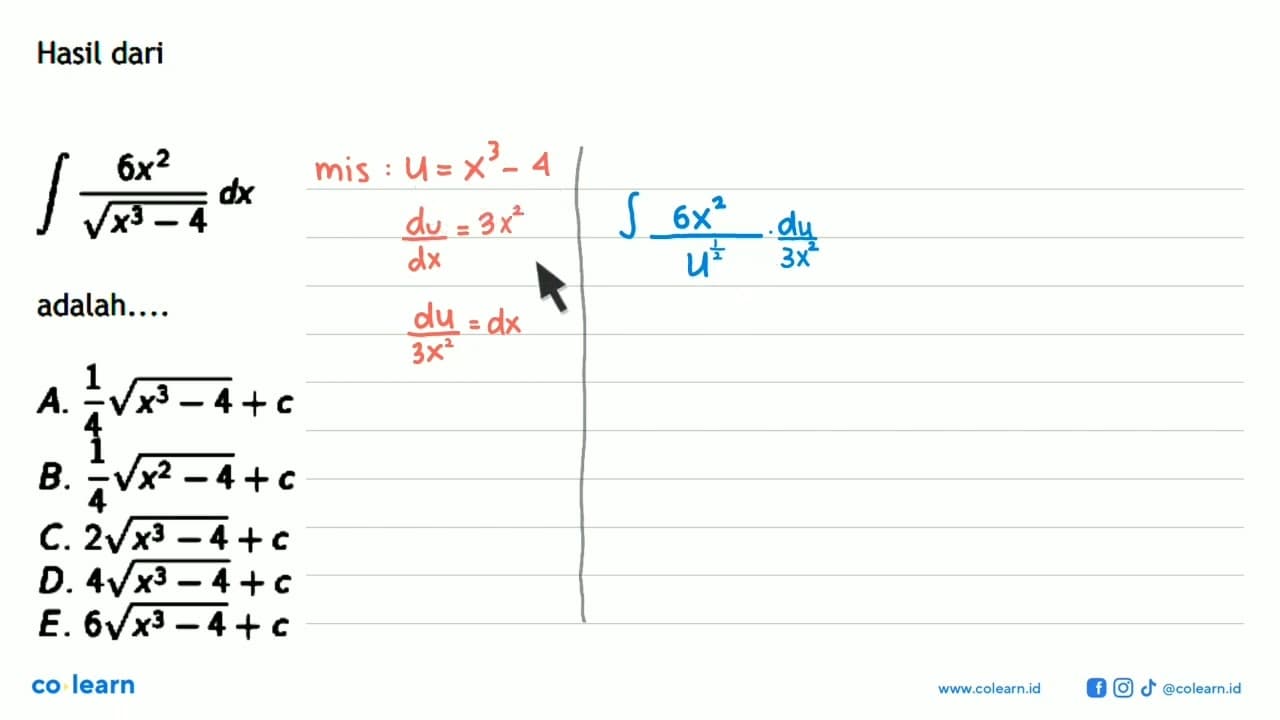 Hasil dari
∫ 6x² / √(x³ − 4) dx
adalah....
A. 1/4 √(x³ − 4) + c
B. 1/4 √(x² − 4) + c
C. 2√(x³ − 4) + c
D. 4√(x³ − 4) + c
E. 6√(x³ − 4) + c
mis : u = x³ - 4
du/dx = 3x²
du/3x² = dx
∫ 6x²/u^(1/2) . du/3x²
co learn
www.colearn.id
@colearn.id